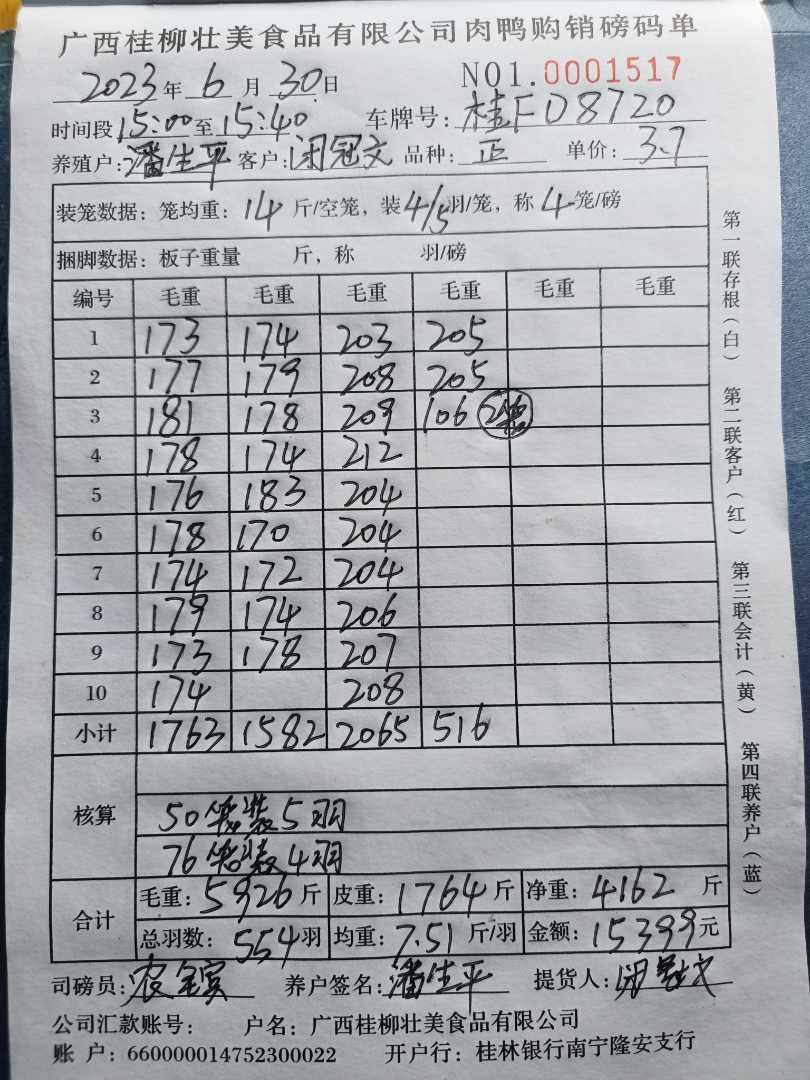 广西桂柳壮美食品有限公司肉鸭购销磅码单
2023年6月30日 NO1.0001517
时间段15:00至15:40 车牌号:桂FD8720
养殖户:潘生平 客户:闭冠文 品种:正 单价:3.7
装笼数据:笼均重:14斤/空笼,装4/5羽/笼,称4笼/磅
捆脚数据:板子重量 斤,称 羽/磅
编号 毛重 毛重 毛重 毛重 毛重 毛重
1 173 174 203 205
2 177 179 208 205
3 181 178 209 106 2笼
4 178 174 212
5 176 183 204
6 178 170 204
7 174 172 204
8 179 174 206
9 173 178 207
10 174 208
小计 1763 1582 2065 516
核算
50笼装5羽
76笼装4羽
合计 毛重:5926斤 皮重:1764斤 净重:4162斤
总羽数:554羽 均重:7.51斤/羽 金额:15399元
司磅员: 养户签名:潘生平 提货人:闭冠文
公司汇款账号: 户名:广西桂柳壮美食品有限公司
账户:660000014752300022 开户行:桂林银行南宁隆安支行
第一联存根(白) 第二联客户(红) 第三联会计(黄) 第四联养户(蓝)